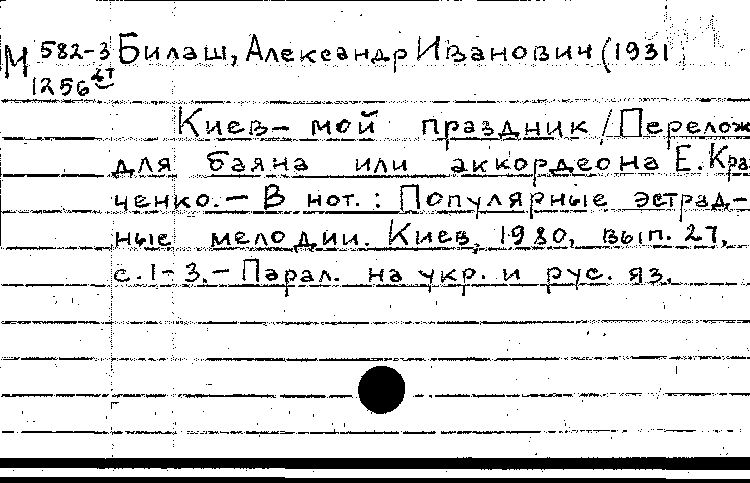 М 582-3 Билаш, Александр Иванович (1931
1256
Киев - мой праздник / Перелож
для баяна или аккордеона Е. Кра
ченко. - В нот.: Популярные эстрад-
ные мелодии. Киев, 1980, вып. 27,
с. 1-3. - Парал. на укр. и рус. яз.